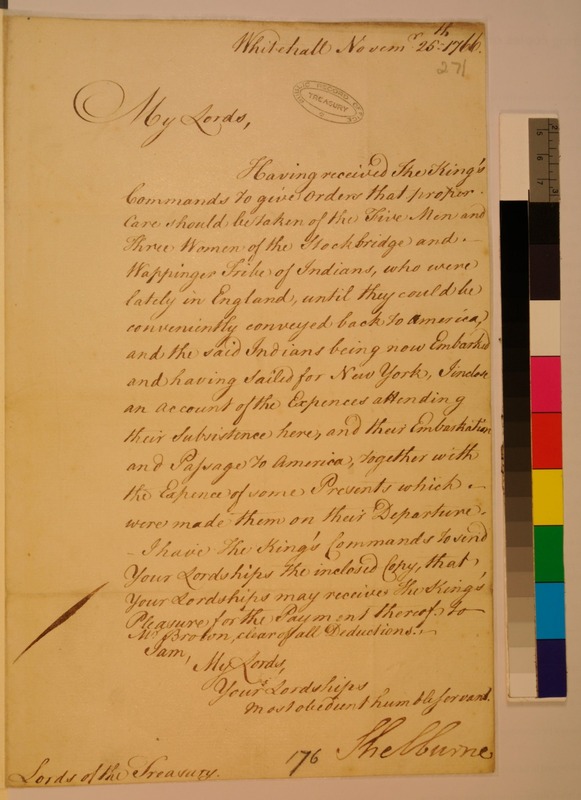 Whitehall Novem.r 25.th 1766.
271
PUBLIC RECORD OFFICE
TREASURY
My Lords,
Having received The King's
Commands to give Orders that proper
Care should be taken of the Five Men and
Three Women of the Stockbridge and
Wappinger Tribe of Indians, who were
lately in England, until they could be
conveniently conveyed back to America,
and the said Indians being now Embarked
and having sailed for New York, I inclose
an Account of the Expences attending
their Subsistence here, and their Embarkation
and Passage to America, together with
the Expence of some Presents which
were made them on their Departure.
I have The King's Commands to send
Your Lordships the inclosed Copy, that
Your Lordships may receive The King's
Pleasure for the Payment thereof to
Mr. Brown, clear of all Deductions.
I am,
My Lords,
Your Lordships
most obedient humble servant.
Shelburne
176
Lords of the Treasury.